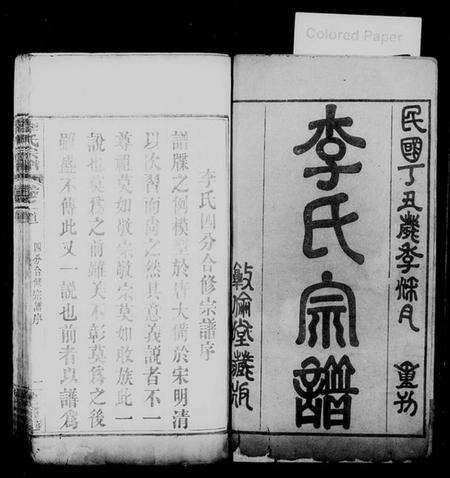 Colored Paper
民國丁丑歲季秌月 重刊
李氏宗譜
敦倫堂藏版
李氏四分合修宗譜序
譜牒之例模型於晉大備於宋明清
以次習而爲之然其意義說者不一
尊祖莫如敬宗敬宗莫如敗族此一
說也莫爲之前雖美不彰莫爲之後
雖盛不傳此又一說也前者以譜爲
四分合修宗譜序